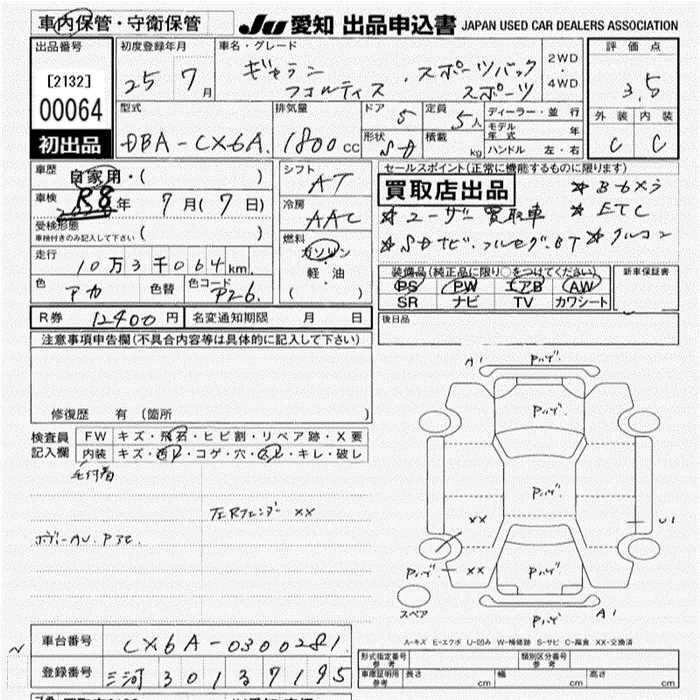 車内保管・守衛保管 JU 愛知 出品申込書 JAPAN USED CAR DEALERS ASSOCIATION
出品番号 初度登録年月 車名・グレード 評価点
[2132] 25年 7月 ギャラン フォルティス スポーツバック スポーツ 2WD・4WD 3.5
00064 型式 排気量 ドア 定員 ディーラー・並行 外装 内装
初出品 DBA-CX6A 1800cc 5 5人 モデル年式 年 C C
形状 積載 kg ハンドル 左・右
車歴 自家用・( ) シフト AT セールスポイント(正常に機能するものに限ります)
車検 R8年 7月(7日) 冷房 AAC 買取店出品 ☆B-6メラ
受検形態 車検付きのみ記入して下さい ( ) ☆ユーザー買取車 ☆ETC
走行 10万3千064km 燃料 ガソリン・軽油 ( ) ☆SDナビ・フルセグ・BT ☆クルコン
色 アカ 色替 色コード P26 装備品(純正品に限り○をつけてください) 新車保証書
PS PW エアB AW
SR ナビ TV カワシート
R券 12400円 名変通知期限 月 日 後日品
注意事項申告欄(不具合内容等は具体的に記入して下さい)
修復歴 有 (箇所 )
検査員記入欄 FW キズ・飛石・ヒビ割・リペア跡・X要
内装 キズ・汚レ・コゲ・穴・・キレ・破レ
毛付着
左Rフェンダー XX
ボデーAU.P3C
A1 Pハゲ
Pハゲ
Pハゲ
XX U1
Pハゲ XX Pハゲ
スペア Pハゲ A1
A-キズ E-エクボ U-凹み W-補修跡 S-サビ C-腐食 XX-交換済
車台番号 CX6A-0300281
登録番号 三河 301 ヲ 7195
形式指定番号 参考 類別区分番号 参考
車庫証明用 参考 長さ cm 幅 cm 高さ cm